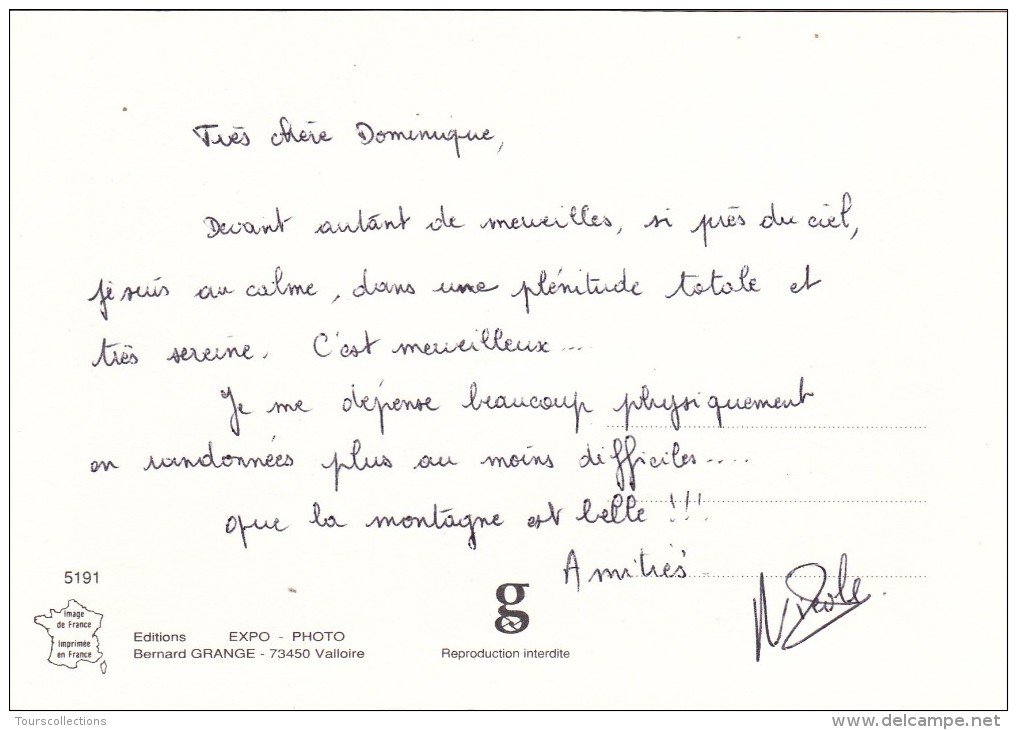 Très chère Dominique,
Devant autant de merveilles, si près du ciel,
je suis au calme, dans une plénitude totale et
très sereine. C'est merveilleux....
Je me dépense beaucoup physiquement
en randonnées plus au moins difficiles.....
que la montagne est belle !!!
Amitiés -
Nicole.
5191
Image
de France
Imprimée
en France
g
Editions EXPO - PHOTO
Bernard GRANGE - 73450 Valloire
Reproduction interdite
Tourscollections
www.delcampe.net